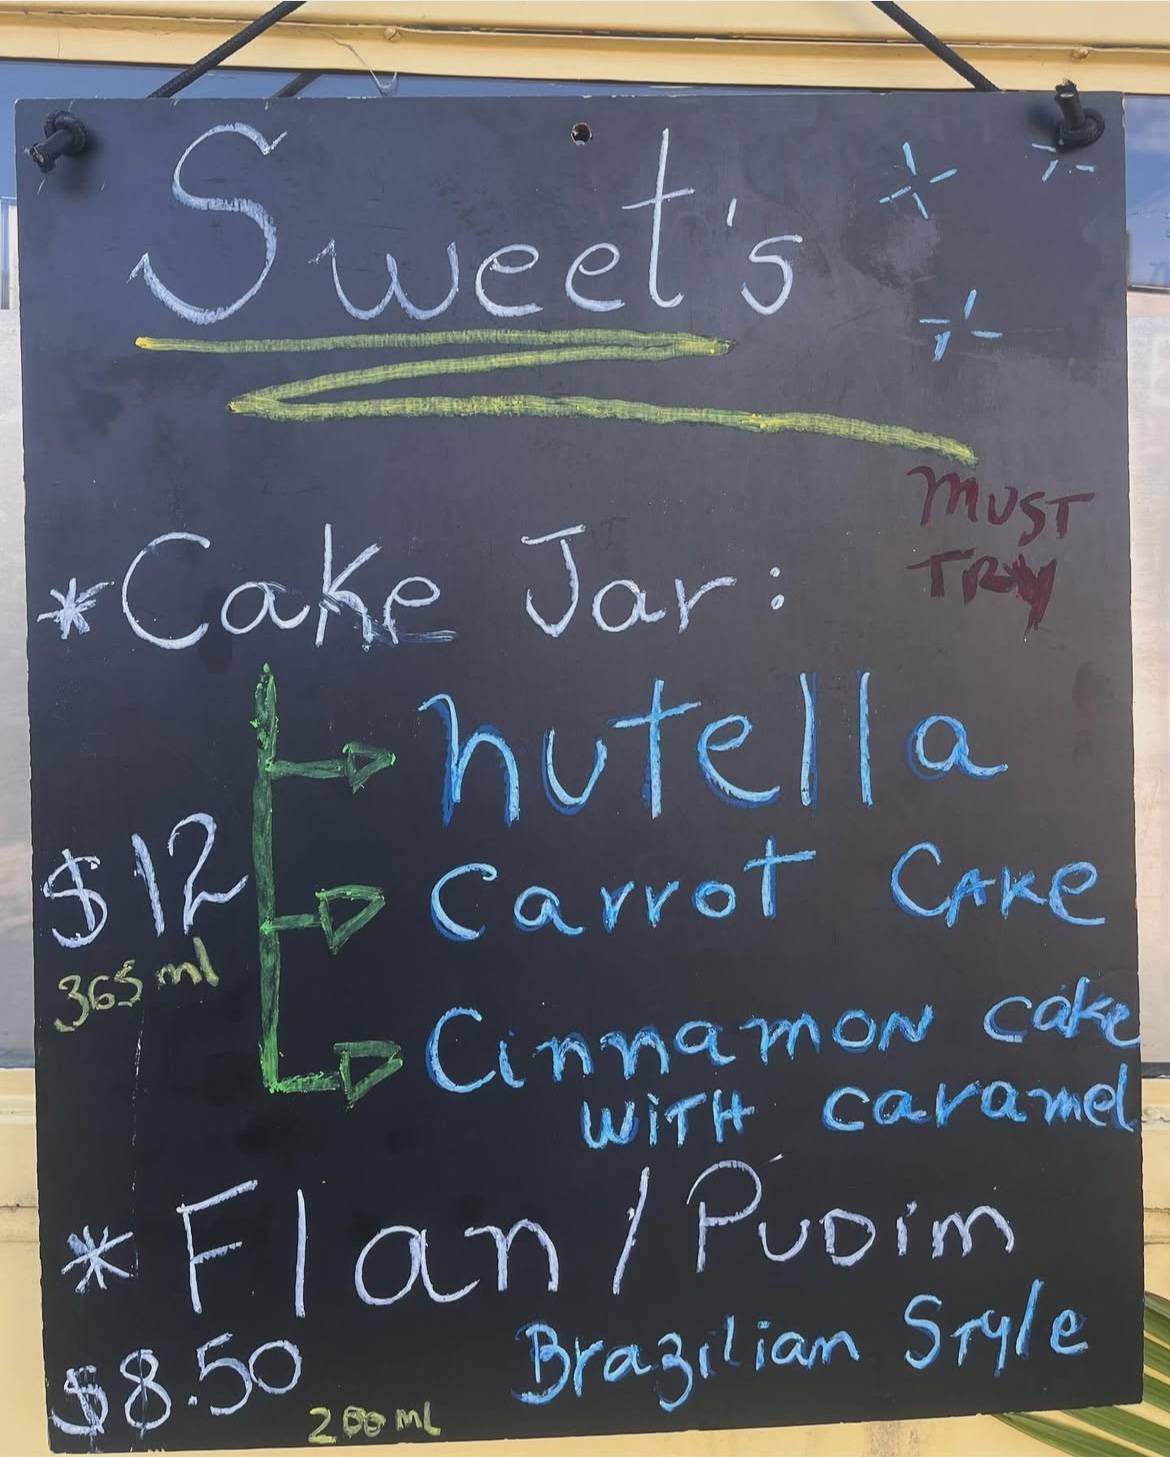 Sweet's
MUST
TRY
*Cake Jar:
nutella
$12
Carrot Cake
365 ml
Cinnamon cake
with caramel
*Flan/Pudim
Brazilian Style
$8.50
200 ml